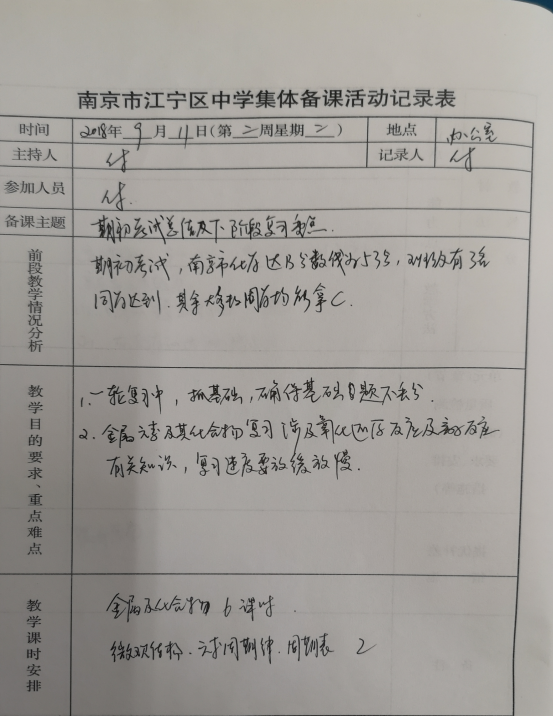 南京市江宁区中学集体备课活动记录表
时间 2018年 9 月 11 日(第 二 周星期 二 ) 地点 办公室
主持人 付 记录人 付
参加人员 付.
备课主题 期初考试总结及下阶段复习重点.
前段教学情况分析
期初考试，南京市化学达B分数线为53分，对班级有3名
同学达到.其余大多数同学均能拿C.
教学目的要求、重点难点
1.一轮复习中，抓基础，确保基础题不丢分.
2.金属元素及其化合物复习涉及氧化还原反应及离子反应
有关知识，复习速度要放缓放慢.
教学课时安排
金属及化合物 6 课时.
微观结构.元素周期律.周期表 2